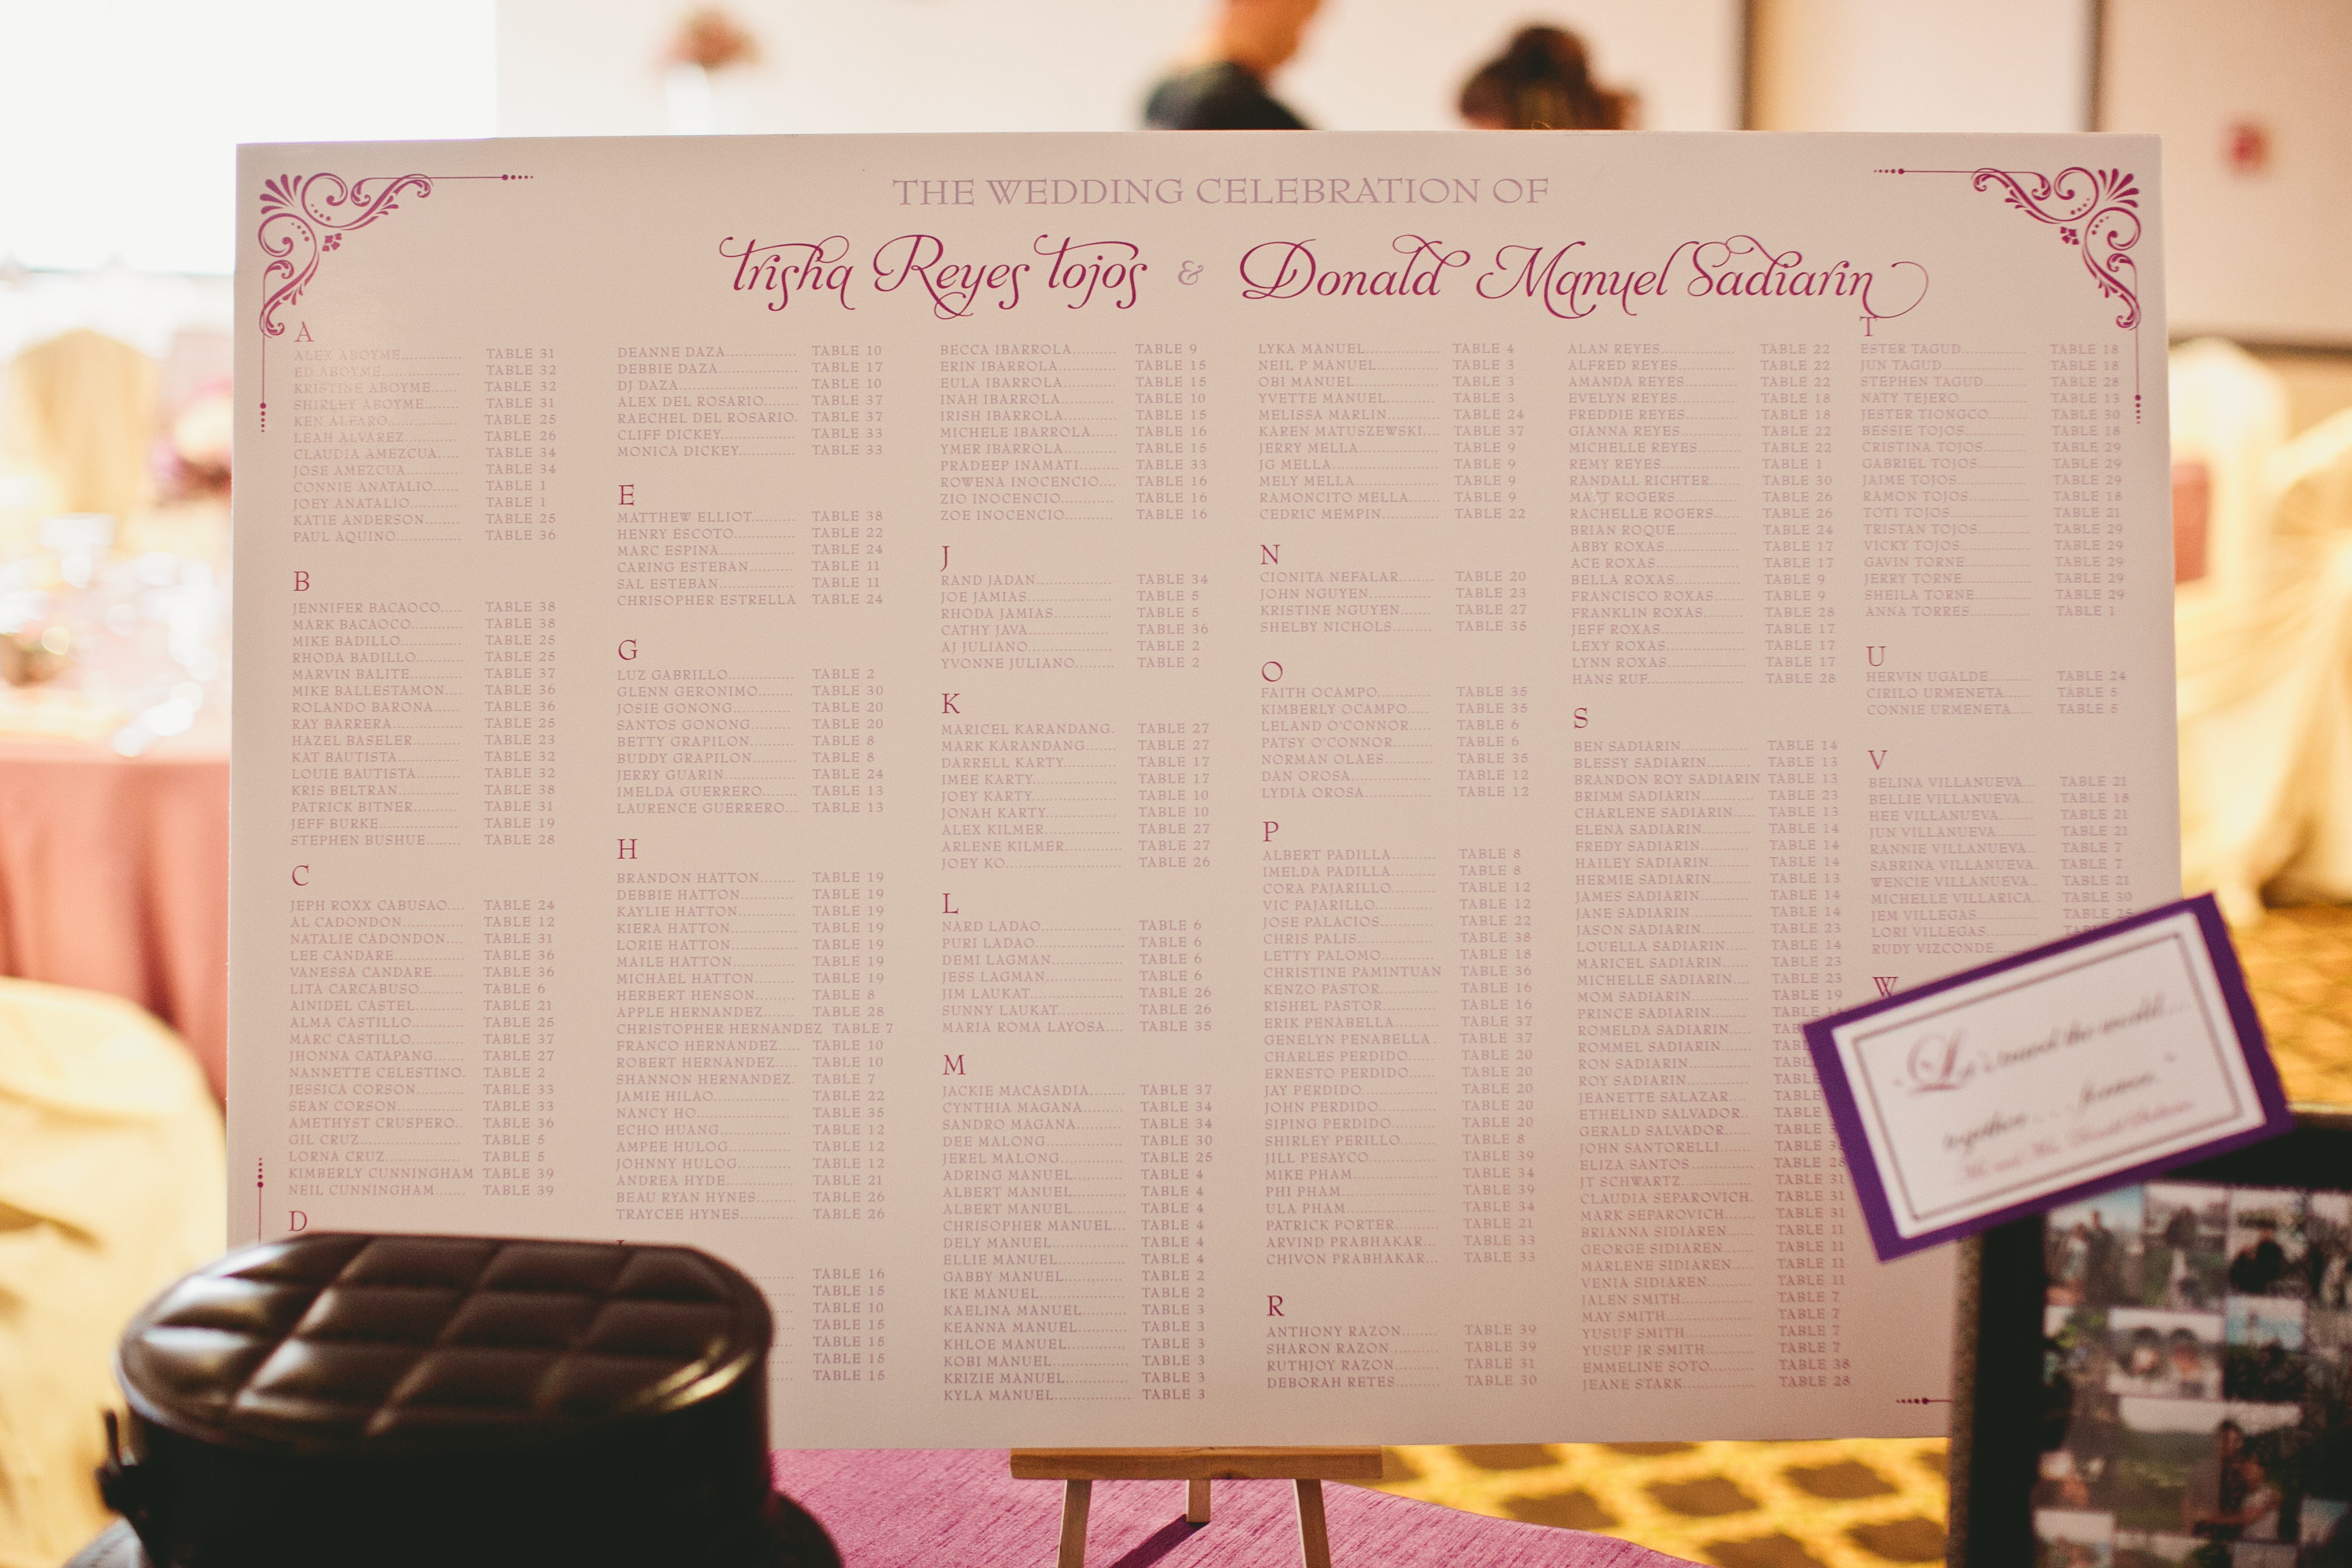 THE WEDDING CELEBRATION OF
Trisha Reyes Tojos & Donald Manuel Sadiarin
A
ALEX ABOYME.............. TABLE 31
ED ABOYME.............. TABLE 32
KRISTINE ABOYME....... TABLE 32
SHIRLEY ABOYME........ TABLE 31
KEN ALFARO.............. TABLE 25
LEAH ALVAREZ............ TABLE 26
CLAUDIA AMEZCUA...... TABLE 34
JOSE AMEZCUA............ TABLE 34
CONNIE ANATALIO...... TABLE 1
JOEY ANATALIO........... TABLE 1
KATIE ANDERSON........ TABLE 25
PAUL AQUINO............. TABLE 36
B
JENNIFER BACAOCO..... TABLE 38
MARK BACAOCO.......... TABLE 38
MIKE BADILLO............ TABLE 25
RHODA BADILLO.......... TABLE 25
MARVIN BALITE.......... TABLE 37
MIKE BALLESTAMON.... TABLE 36
ROLANDO BARONA....... TABLE 36
RAY BARRERA............. TABLE 25
HAZEL BASELER........... TABLE 23
KAT BAUTISTA............ TABLE 32
LOUIE BAUTISTA.......... TABLE 32
KRIS BELTRAN............ TABLE 38
PATRICK BITNER.......... TABLE 31
JEFF BURKE................ TABLE 19
STEPHEN BUSHUE........ TABLE 28
C
JEPH ROXX CABUSAO.... TABLE 24
AL CADONDON............ TABLE 12
NATALIE CADONDON.... TABLE 31
LEE CANDARE............. TABLE 36
VANESSA CANDARE...... TABLE 36
LITA CARCABUSO......... TABLE 6
AINIDEL CASTEL.......... TABLE 21
ALMA CASTILLO.......... TABLE 25
MARC CASTILLO.......... TABLE 37
JHONNA CATAPANG...... TABLE 27
NANNETTE CELESTINO. TABLE 2
JESSICA CORSON.......... TABLE 33
SEAN CORSON............. TABLE 33
AMETHYST CRUSPERO.. TABLE 36
GIL CRUZ.................. TABLE 5
LORNA CRUZ.............. TABLE 5
KIMBERLY CUNNINGHAM TABLE 39
NEIL CUNNINGHAM...... TABLE 39
D
DEANNE DAZA............ TABLE 10
DEBBIE DAZA............. TABLE 17
DJ DAZA................... TABLE 10
ALEX DEL ROSARIO....... TABLE 37
RAECHEL DEL ROSARIO. TABLE 37
CLIFF DICKEY............. TABLE 33
MONICA DICKEY.......... TABLE 33
E
MATTHEW ELLIOT........ TABLE 38
HENRY ESCOTO........... TABLE 22
MARC ESPINA............. TABLE 24
CARING ESTEBAN......... TABLE 11
SAL ESTEBAN............. TABLE 11
CHRISOPHER ESTRELLA TABLE 24
G
LUZ GABRILLO............ TABLE 2
GLENN GERONIMO....... TABLE 30
JOSIE GONONG........... TABLE 20
SANTOS GONONG......... TABLE 20
BETTY GRAPILON......... TABLE 8
BUDDY GRAPILON........ TABLE 8
JERRY GUARIN............ TABLE 24
IMELDA GUERRERO...... TABLE 13
LAURENCE GUERRERO... TABLE 13
H
BRANDON HATTON....... TABLE 19
DEBBIE HATTON.......... TABLE 19
KAYLIE HATTON.......... TABLE 19
KIERA HATTON........... TABLE 19
LORIE HATTON........... TABLE 19
MAILE HATTON........... TABLE 19
MICHAEL HATTON........ TABLE 19
HERBERT HENSON........ TABLE 8
APPLE HERNANDEZ...... TABLE 28
CHRISTOPHER HERNANDEZ TABLE 7
FRANCO HERNANDEZ.... TABLE 10
ROBERT HERNANDEZ.... TABLE 10
SHANNON HERNANDEZ. TABLE 7
JAMIE HILAO.............. TABLE 22
NANCY HO................. TABLE 35
ECHO HUANG............. TABLE 12
AMPEE HULOG............ TABLE 12
JOHNNY HULOG.......... TABLE 12
ANDREA HYDE............ TABLE 21
BEAU RYAN HYNES....... TABLE 26
TRAYCEE HYNES.......... TABLE 26
TABLE 16
TABLE 15
TABLE 10
TABLE 15
TABLE 15
TABLE 15
TABLE 15
BECCA IBARROLA......... TABLE 9
ERIN IBARROLA........... TABLE 15
EULA IBARROLA.......... TABLE 15
INAH IBARROLA.......... TABLE 10
IRISH IBARROLA.......... TABLE 15
MICHELE IBARROLA..... TABLE 16
YMER IBARROLA.......... TABLE 15
PRADEEP INAMATI....... TABLE 33
ROWENA INOCENCIO.... TABLE 16
ZIO INOCENCIO........... TABLE 16
ZOE INOCENCIO.......... TABLE 16
J
RAND JADAN.............. TABLE 34
JOE JAMIAS............... TABLE 5
RHODA JAMIAS........... TABLE 5
CATHY JAVA.............. TABLE 36
AJ JULIANO............... TABLE 2
YVONNE JULIANO........ TABLE 2
K
MARICEL KARANDANG. TABLE 27
MARK KARANDANG...... TABLE 27
DARRELL KARTY......... TABLE 17
IMEE KARTY.............. TABLE 17
JOEY KARTY.............. TABLE 10
JONAH KARTY............ TABLE 10
ALEX KILMER............. TABLE 27
ARLENE KILMER.......... TABLE 27
JOEY KO................... TABLE 26
L
NARD LADAO.............. TABLE 6
PURI LADAO............... TABLE 6
DEMI LAGMAN............ TABLE 6
JESS LAGMAN............. TABLE 6
JIM LAUKAT............... TABLE 26
SUNNY LAUKAT........... TABLE 26
MARIA ROMA LAYOSA... TABLE 35
M
JACKIE MACASADIA...... TABLE 37
CYNTHIA MAGANA....... TABLE 34
SANDRO MAGANA........ TABLE 34
DEE MALONG............. TABLE 30
JEREL MALONG........... TABLE 25
ADRING MANUEL......... TABLE 4
ALBERT MANUEL......... TABLE 4
ALBERT MANUEL......... TABLE 4
CHRISOPHER MANUEL... TABLE 4
DELY MANUEL............ TABLE 4
ELLIE MANUEL........... TABLE 4
GABBY MANUEL.......... TABLE 2
IKE MANUEL.............. TABLE 2
KAELINA MANUEL....... TABLE 3
KEANNA MANUEL........ TABLE 3
KHLOE MANUEL.......... TABLE 3
KOBI MANUEL............ TABLE 3
KRIZIE MANUEL.......... TABLE 3
KYLA MANUEL............ TABLE 3
LYKA MANUEL............ TABLE 4
NEIL P MANUEL.......... TABLE 3
OBI MANUEL.............. TABLE 3
YVETTE MANUEL......... TABLE 3
MELISSA MARLIN........ TABLE 24
KAREN MATUSZEWSKI... TABLE 37
JERRY MELLA............. TABLE 9
JG MELLA................. TABLE 9
MELY MELLA.............. TABLE 9
RAMONCITO MELLA...... TABLE 9
CEDRIC MEMPIN......... TABLE 22
N
CIONITA NEFALAR....... TABLE 20
JOHN NGUYEN............ TABLE 23
KRISTINE NGUYEN....... TABLE 27
SHELBY NICHOLS........ TABLE 35
O
FAITH OCAMPO........... TABLE 35
KIMBERLY OCAMPO...... TABLE 35
LELAND O'CONNOR...... TABLE 6
PATSY O'CONNOR........ TABLE 6
NORMAN OLAES.......... TABLE 35
DAN OROSA............... TABLE 12
LYDIA OROSA............. TABLE 12
P
ALBERT PADILLA......... TABLE 8
IMELDA PADILLA......... TABLE 8
CORA PAJARILLO......... TABLE 12
VIC PAJARILLO........... TABLE 12
JOSE PALACIOS........... TABLE 22
CHRIS PALIS.............. TABLE 38
LETTY PALOMO........... TABLE 18
CHRISTINE PAMINTUAN TABLE 36
KENZO PASTOR........... TABLE 16
RISHEL PASTOR.......... TABLE 16
ERIK PENABELLA......... TABLE 37
GENELYN PENABELLA. TABLE 37
CHARLES PERDIDO...... TABLE 20
ERNESTO PERDIDO...... TABLE 20
JAY PERDIDO............. TABLE 20
JOHN PERDIDO........... TABLE 20
SIPING PERDIDO......... TABLE 20
SHIRLEY PERILLO........ TABLE 8
JILL PESAYCO............ TABLE 39
MIKE PHAM............... TABLE 34
PHI PHAM................. TABLE 39
ULA PHAM................ TABLE 34
PATRICK PORTER........ TABLE 21
ARVIND PRABHAKAR... TABLE 33
CHIVON PRABHAKAR... TABLE 33
R
ANTHONY RAZON........ TABLE 39
SHARON RAZON.......... TABLE 39
RUTHJOY RAZON......... TABLE 31
DEBORAH RETES......... TABLE 30
ALAN REYES.............. TABLE 22
ALFRED REYES........... TABLE 22
AMANDA REYES.......... TABLE 22
EVELYN REYES........... TABLE 18
FREDDIE REYES.......... TABLE 18
GIANNA REYES........... TABLE 22
MICHELLE REYES........ TABLE 22
REMY REYES.............. TABLE 1
RANDALL RICHTER...... TABLE 30
MATT ROGERS............ TABLE 26
RACHELLE ROGERS...... TABLE 26
BRIAN ROQUE............ TABLE 24
ABBY ROXAS.............. TABLE 17
ACE ROXAS................ TABLE 17
BELLA ROXAS............. TABLE 9
FRANCISCO ROXAS...... TABLE 9
FRANKLIN ROXAS....... TABLE 28
JEFF ROXAS............... TABLE 17
LEXY ROXAS.............. TABLE 17
LYNN ROXAS.............. TABLE 17
HANS RUF................. TABLE 28
S
BEN SADIARIN............ TABLE 14
BLESSY SADIARIN........ TABLE 13
BRANDON ROY SADIARIN TABLE 13
BRIMM SADIARIN........ TABLE 23
CHARLENE SADIARIN.... TABLE 13
ELENA SADIARIN......... TABLE 14
FREDY SADIARIN......... TABLE 14
HAILEY SADIARIN........ TABLE 14
HERMIE SADIARIN....... TABLE 13
JAMES SADIARIN......... TABLE 14
JANE SADIARIN........... TABLE 14
JASON SADIARIN......... TABLE 23
LOUELLA SADIARIN..... TABLE 14
MARICEL SADIARIN..... TABLE 23
MICHELLE SADIARIN.... TABLE 23
MOM SADIARIN.......... TABLE 19
PRINCE SADIARIN.......
ROMELDA SADIARIN....
ROMMEL SADIARIN......
RON SADIARIN...........
ROY SADIARIN...........
JEANETTE SALAZAR.....
ETHELIND SALVADOR..
GERALD SALVADOR.....
JOHN SANTORELLI......
ELIZA SANTOS............ TABLE 28
JT SCHWARTZ............ TABLE 31
CLAUDIA SEPAROVICH. TABLE 31
MARK SEPAROVICH...... TABLE 31
BRIANNA SIDIAREN..... TABLE 11
GEORGE SIDIAREN....... TABLE 11
MARLENE SIDIAREN..... TABLE 11
VENIA SIDIAREN......... TABLE 11
JALEN SMITH............. TABLE 7
MAY SMITH............... TABLE 7
YUSUF SMITH............. TABLE 7
YUSUF JR SMITH......... TABLE 7
EMMELINE SOTO......... TABLE 38
JEANE STARK............. TABLE 28
T
ESTER TAGUD............ TABLE 18
JUN TAGUD............... TABLE 18
STEPHEN TAGUD......... TABLE 28
NATY TEJERO............. TABLE 13
JESTER TIONGCO......... TABLE 30
BESSIE TOJOS............ TABLE 18
CRISTINA TOJOS......... TABLE 29
GABRIEL TOJOS.......... TABLE 29
JAIME TOJOS.............. TABLE 29
RAMON TOJOS............ TABLE 18
TOTI TOJOS............... TABLE 21
TRISTAN TOJOS.......... TABLE 29
VICKY TOJOS............. TABLE 29
GAVIN TORNE............ TABLE 29
JERRY TORNE............. TABLE 29
SHEILA TORNE........... TABLE 29
ANNA TORRES............ TABLE 1
U
HERVIN UGALDE......... TABLE 24
CIRILO URMENETA...... TABLE 5
CONNIE URMENETA..... TABLE 5
V
BELINA VILLANUEVA... TABLE 21
BELLIE VILLANUEVA... TABLE 18
HEE VILLANUEVA....... TABLE 21
JUN VILLANUEVA....... TABLE 21
RANNIE VILLANUEVA.. TABLE 7
SABRINA VILLANUEVA. TABLE 7
WENCIE VILLANUEVA.. TABLE 21
MICHELLE VILLARICA.. TABLE 30
JEM VILLEGAS............ TABLE 25
LORI VILLEGAS...........
RUDY VIZCONDE.........
W
Let's travel the world...
together... forever.